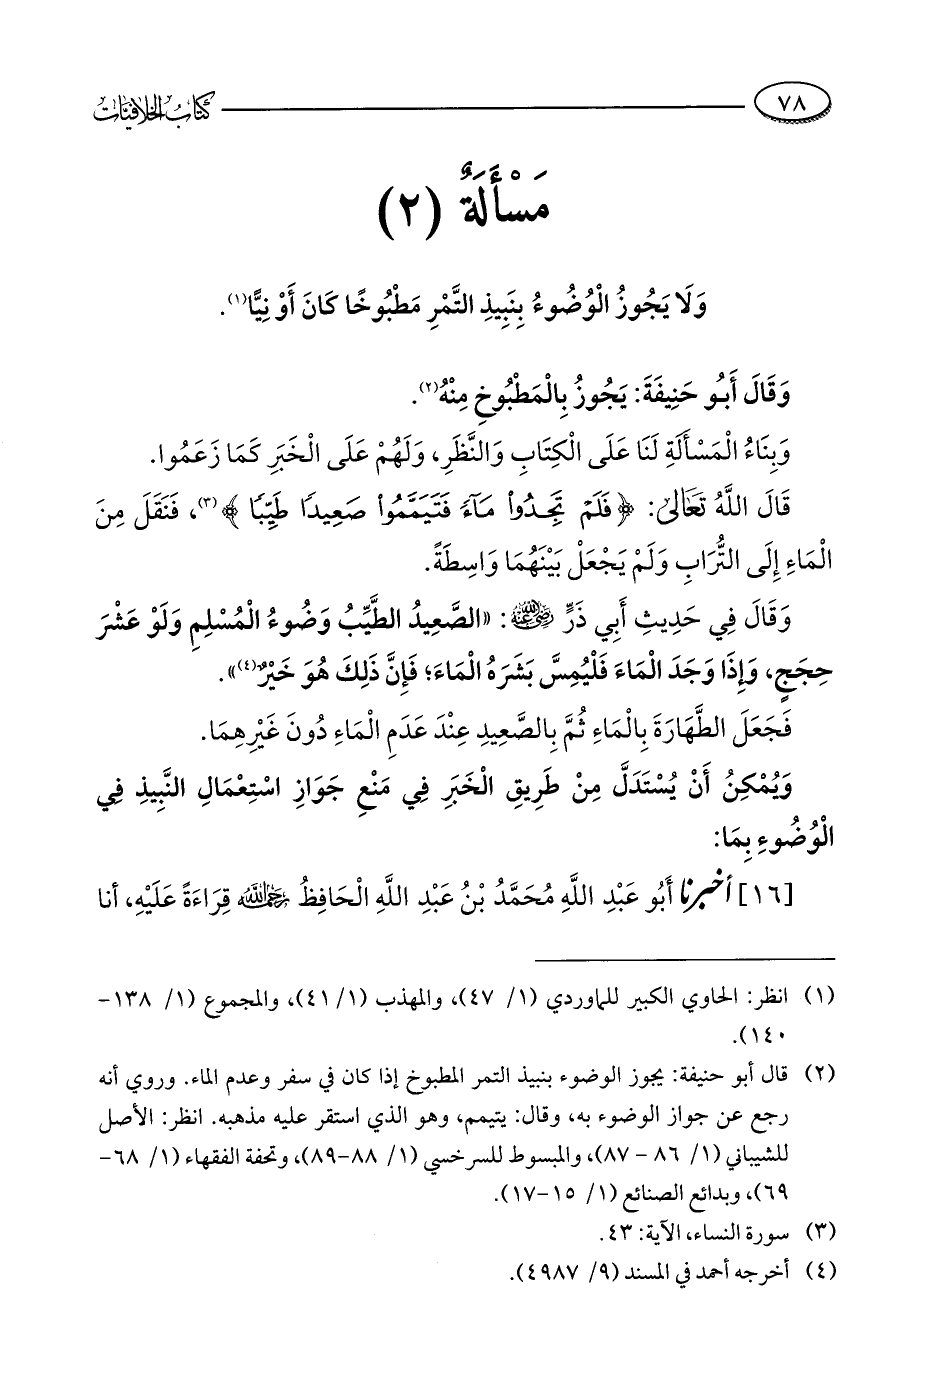 ٧٨
كتاب الخلافيات
مَسْأَلَةٌ (٢)
وَلَا يَجُوزُ الْوُضُوءُ بِنَبِيذِ التَّمْرِ مَطْبُوخًا كَانَ أَوْ نِيًّا(١).
وَقَالَ أَبُو حَنِيفَةَ: يَجُوزُ بِالْمَطْبُوخِ مِنْهُ(٢).
وَبِنَاءُ الْمَسْأَلَةِ لَنَا عَلَى الْكِتَابِ وَالنَّظَرِ، وَلَهُمْ عَلَى الْخَبَرِ كَمَا زَعَمُوا.
قَالَ اللَّهُ تَعَالَىٰ: ﴿فَلَمْ تَجِدُوا۟ مَآءً فَتَيَمَّمُوا۟ صَعِيدًا طَيِّبًا﴾(٣)، فَنَقَلَ مِنَ
الْمَاءِ إِلَى التُّرَابِ وَلَمْ يَجْعَلْ بَيْنَهُمَا وَاسِطَةً.
وَقَالَ فِي حَدِيثِ أَبِي ذَرٍّ رضي الله عنه: «الصَّعِيدُ الطَّيِّبُ وَضُوءُ الْمُسْلِمِ وَلَوْ عَشْرَ
حِجَجٍ، وَإِذَا وَجَدَ الْمَاءَ فَلْيُمِسَّ بَشَرَهُ الْمَاءَ؛ فَإِنَّ ذَلِكَ هُوَ خَيْرٌ(٤)».
فَجَعَلَ الطَّهَارَةَ بِالْمَاءِ ثُمَّ بِالصَّعِيدِ عِنْدَ عَدَمِ الْمَاءِ دُونَ غَيْرِهِمَا.
وَيُمْكِنُ أَنْ يُسْتَدَلَّ مِنْ طَرِيقِ الْخَبَرِ فِي مَنْعِ جَوَازِ اسْتِعْمَالِ النَّبِيذِ فِي
الْوُضُوءِ بِمَا:
[١٦] أخبرنا أَبُو عَبْدِ اللَّهِ مُحَمَّدُ بْنُ عَبْدِ اللَّهِ الْحَافِظُ رحمه الله قِرَاءَةً عَلَيْهِ، أنا
(١) انظر: الحاوي الكبير للماوردي (١/ ٤٧)، والمهذب (١/ ٤١)، والمجموع (١/ ١٣٨-
١٤٠).
(٢) قال أبو حنيفة: يجوز الوضوء بنبيذ التمر المطبوخ إذا كان في سفر وعدم الماء. وروي أنه
رجع عن جواز الوضوء به، وقال: يتيمم، وهو الذي استقر عليه مذهبه. انظر: الأصل
للشيباني (١/ ٨٦ - ٨٧)، والمبسوط للسرخسي (١/ ٨٨-٨٩)، وتحفة الفقهاء (١/ ٦٨-
٦٩)، وبدائع الصنائع (١/ ١٥-١٧).
(٣) سورة النساء، الآية: ٤٣.
(٤) أخرجه أحمد في المسند (٩/ ٤٩٨٧).